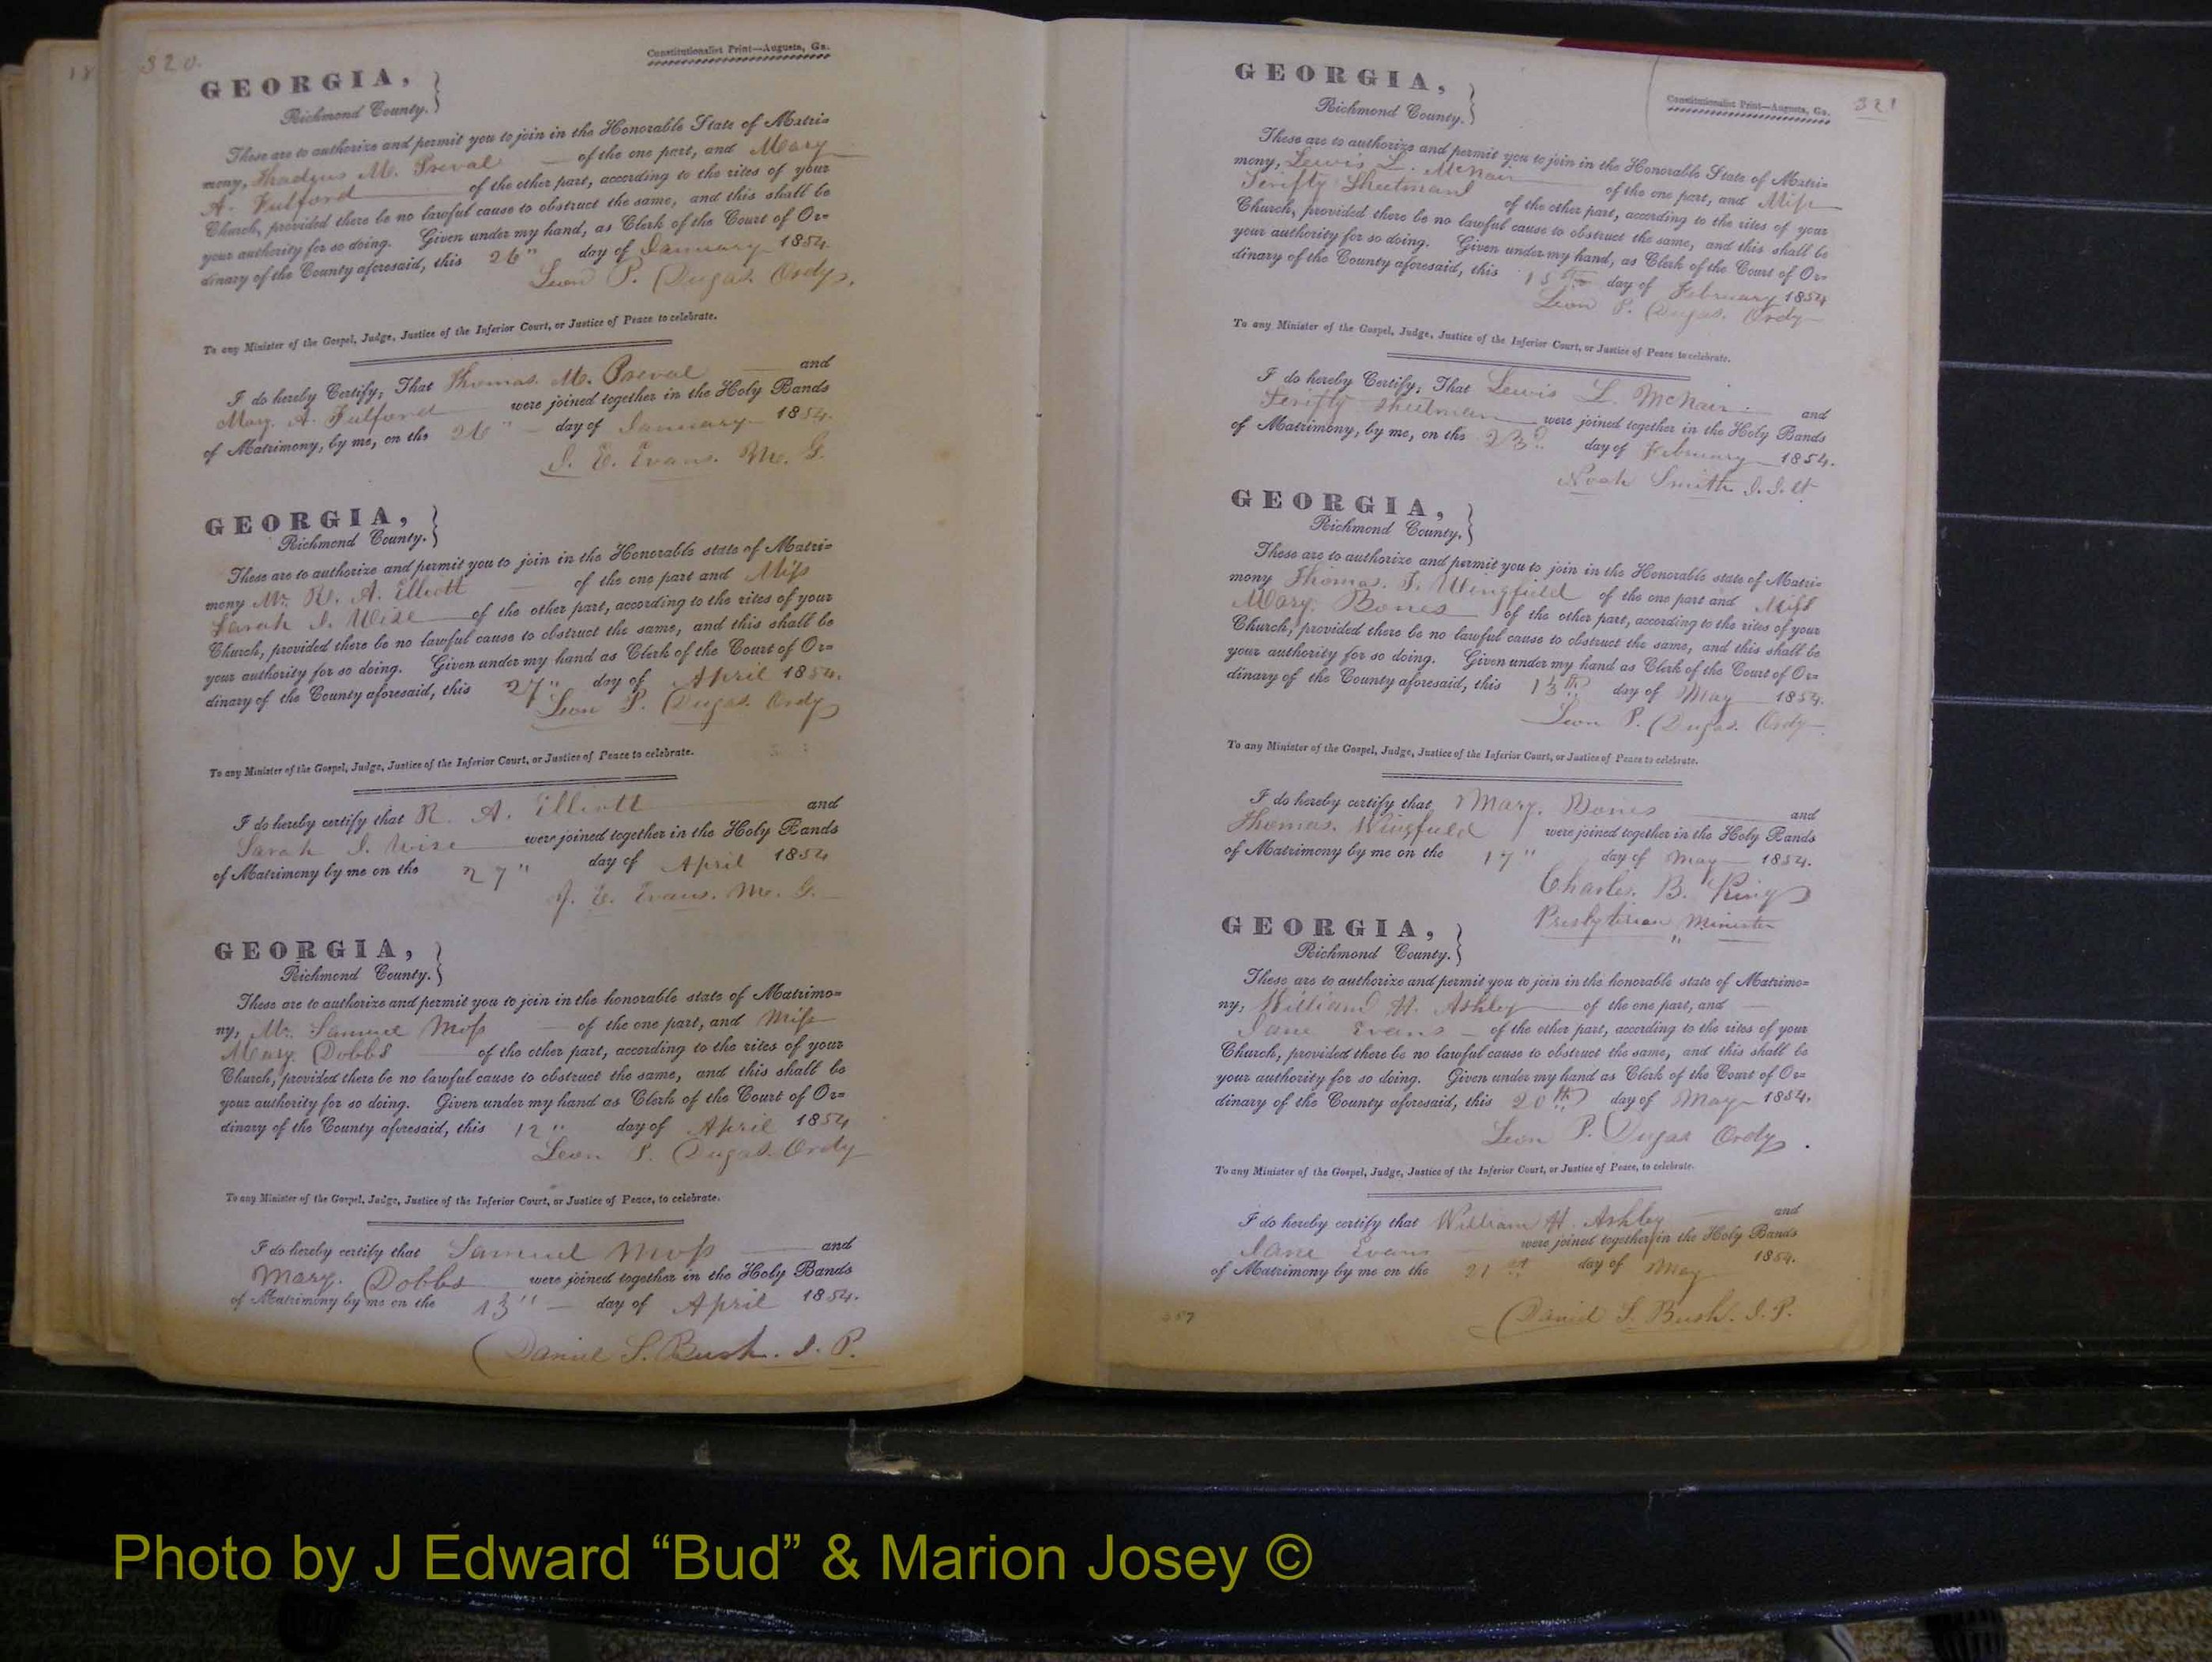 320.
Constitutionalist Print—Augusta, Ga.
GEORGIA,
Richmond County.
These are to authorize and permit you to join in the Honorable State of Matri-
mony, Thadeus M. Preval of the one part, and Mary
A. Fulford of the other part, according to the rites of your
Church, provided there be no lawful cause to obstruct the same, and this shall be
your authority for so doing. Given under my hand, as Clerk of the Court of Or-
dinary of the County aforesaid, this 26" day of January 1854.
Leon P. Dugas Ordy.
To any Minister of the Gospel, Judge, Justice of the Inferior Court, or Justice of Peace to celebrate.
I do hereby Certify, That Thomas M. Preval and
Mary A. Fulford were joined together in the Holy Bands
of Matrimony, by me, on the 26" day of January 1854.
J. E. Evans. M. G.
GEORGIA,
Richmond County.
These are to authorize and permit you to join in the Honorable state of Matri-
mony Mr. R. A. Elliott of the one part and Miss
Sarah J. Wise of the other part, according to the rites of your
Church, provided there be no lawful cause to obstruct the same, and this shall be
your authority for so doing. Given under my hand as Clerk of the Court of Or-
dinary of the County aforesaid, this 27" day of April 1854.
Leon P. Dugas. Ordy
To any Minister of the Gospel, Judge, Justice of the Inferior Court, or Justice of Peace to celebrate.
I do hereby certify that R. A. Elliott and
Sarah J. Wise were joined together in the Holy Bands
of Matrimony by me on the 27" day of April 1854
J. E. Evans. M. G.
GEORGIA,
Richmond County.
These are to authorize and permit you to join in the honorable state of Matrimo-
ny, Mr. Samuel Moss of the one part, and Miss
Mary Dobbs of the other part, according to the rites of your
Church, provided there be no lawful cause to obstruct the same, and this shall be
your authority for so doing. Given under my hand as Clerk of the Court of Or-
dinary of the County aforesaid, this 12" day of April 1854
Leon P. Dugas. Ordy
To any Minister of the Gospel, Judge, Justice of the Inferior Court, or Justice of Peace, to celebrate.
I do hereby certify that Samuel Moss and
Mary Dobbs were joined together in the Holy Bands
of Matrimony by me on the 13" day of April 1854.
Daniel S. Bush. J. P.
321
Constitutionalist Print—Augusta, Ga.
GEORGIA,
Richmond County.
These are to authorize and permit you to join in the Honorable State of Matri-
mony, Lewis L. McNair of the one part, and Miss
of the other part, according to the rites of your
Church, provided there be no lawful cause to obstruct the same, and this shall be
your authority for so doing. Given under my hand, as Clerk of the Court of Or-
dinary of the County aforesaid, this 15th day of February 1854
Leon P. Dugas. Ordy
To any Minister of the Gospel, Judge, Justice of the Inferior Court, or Justice of Peace to celebrate.
I do hereby Certify, That Lewis L. McNair and
were joined together in the Holy Bands
of Matrimony, by me, on the 23d day of February 1854.
Noah Smith
GEORGIA,
Richmond County.
These are to authorize and permit you to join in the Honorable state of Matri-
mony Thomas J. Wingfield of the one part and Miss
Mary Bones of the other part, according to the rites of your
Church, provided there be no lawful cause to obstruct the same, and this shall be
your authority for so doing. Given under my hand as Clerk of the Court of Or-
dinary of the County aforesaid, this 13th day of May 1854.
Leon P. Dugas. Ordy
To any Minister of the Gospel, Judge, Justice of the Inferior Court, or Justice of Peace to celebrate.
I do hereby certify that Mary Bones and
Thomas Wingfield were joined together in the Holy Bands
of Matrimony by me on the 17" day of May 1854.
Charles B. King
Presbyterian Minister
GEORGIA,
Richmond County.
These are to authorize and permit you to join in the honorable state of Matrimo-
ny, William H. Ashley of the one part, and
Jane Evans of the other part, according to the rites of your
Church, provided there be no lawful cause to obstruct the same, and this shall be
your authority for so doing. Given under my hand as Clerk of the Court of Or-
dinary of the County aforesaid, this 20th day of May 1854.
Leon P. Dugas Ordy.
To any Minister of the Gospel, Judge, Justice of the Inferior Court, or Justice of Peace, to celebrate.
I do hereby certify that William H. Ashley and
Jane Evans were joined together in the Holy Bands
of Matrimony by me on the 21st day of May 1854.
Daniel S. Bush. J. P.
Photo by J Edward “Bud” & Marion Josey ©